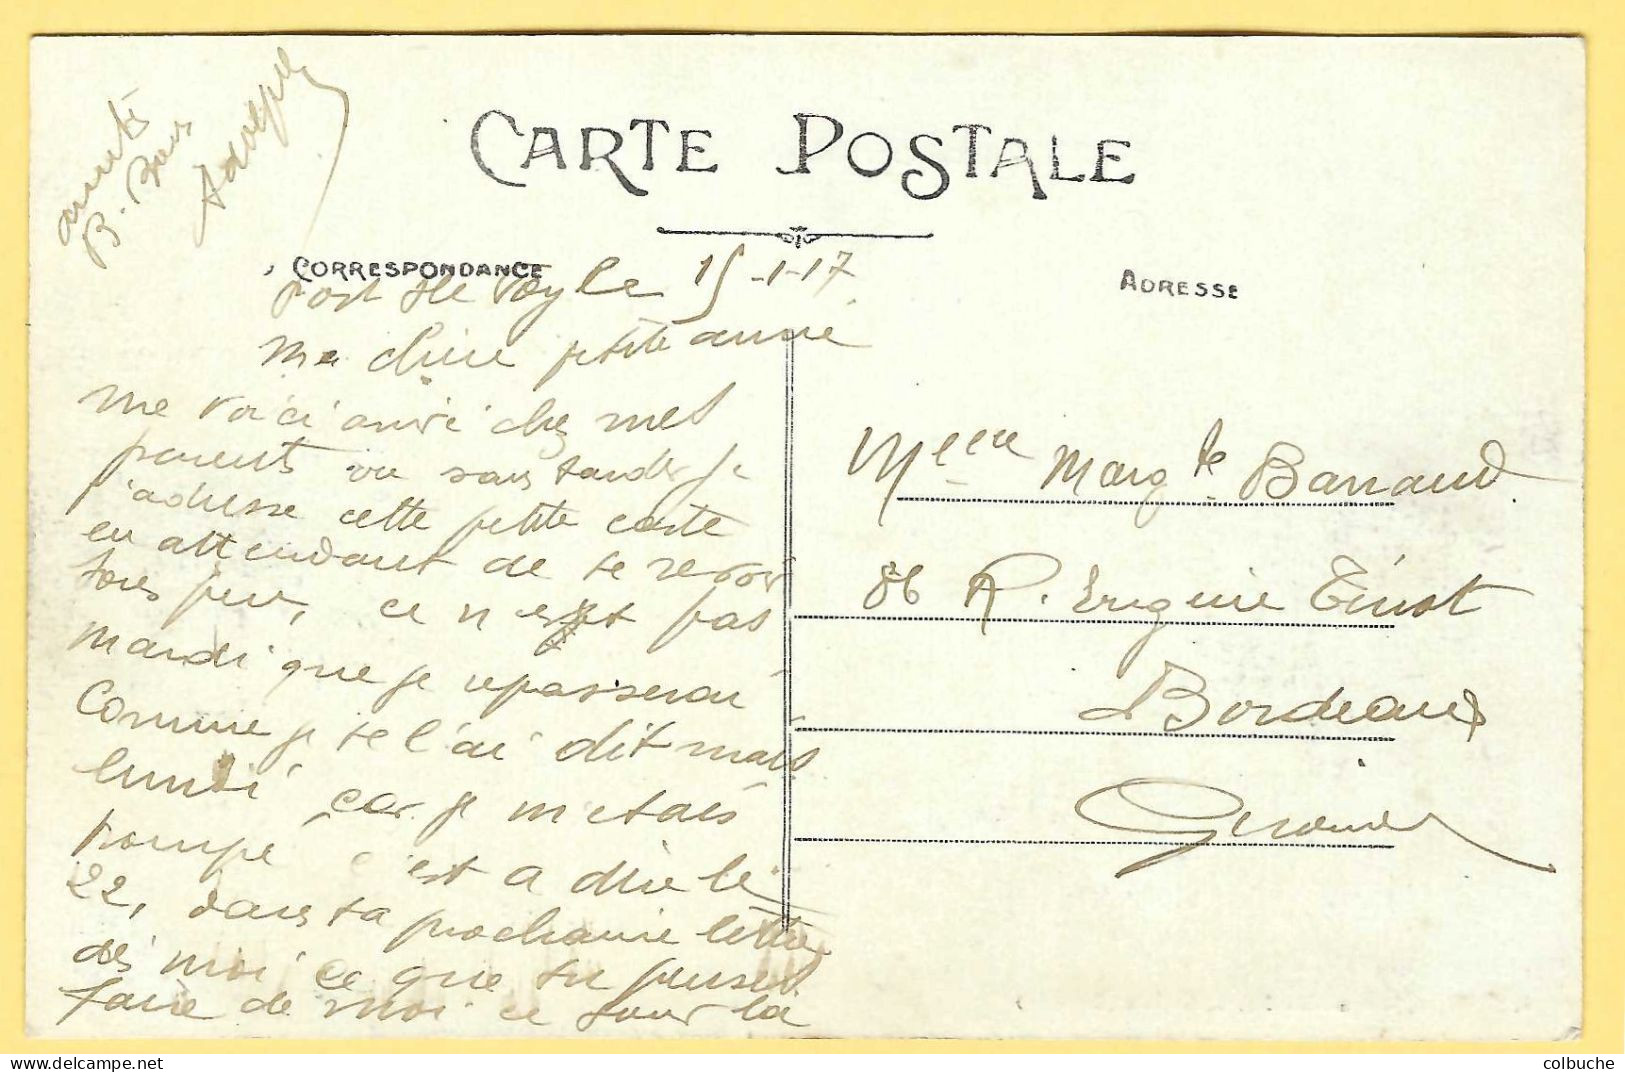 CARTE POSTALE
CORRESPONDANCE
ADRESSE
Port Ste Foy le 15-1-17
Ma chère petite amie
me voici arrivé chez mes
parents ou sans tarder je
t'adresse cette petite carte
en attendant de te revoir
sous peu, ce n'est pas
mardi que je repasserai
comme je te l'ai dit mais
lundi car je m'etais
trompé c'est a dire le
22, dans ta prochaine lettre
dis moi ce que tu penses
faire de moi ce jour là
amitiés
B.
Adolphe
Melle Margte Barraud
86 R. Eugène Ténot
Bordeaux
Gironde
colbuche